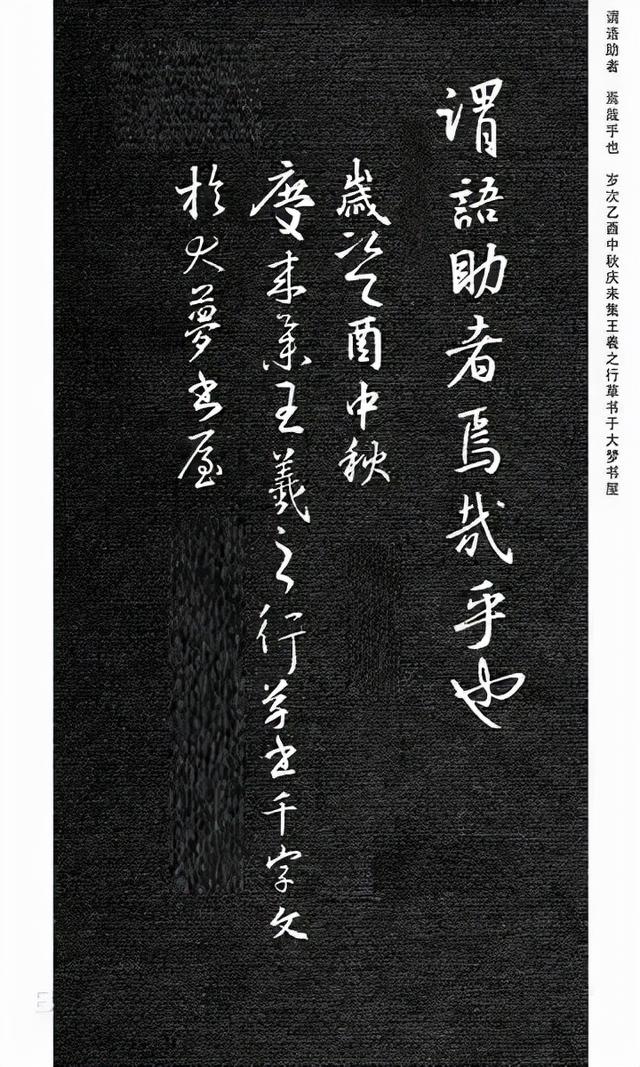 谓语助者 焉哉乎也 岁次乙酉中秋庆来集王羲之行草书于大梦书屋
謂語助者焉哉乎也
歲次乙酉中秋
慶来集王羲之行草書千字文
於大夢書屋